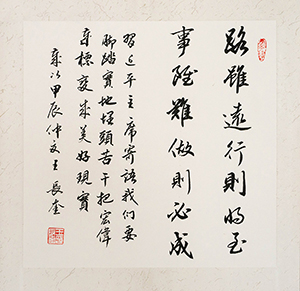 路雖遠行則將至
事雖難做則必成
習近平主席寄語我們要
腳踏實地埋頭苦干把宏偉
目標變成美好現實
歲次甲辰仲夏王長奎